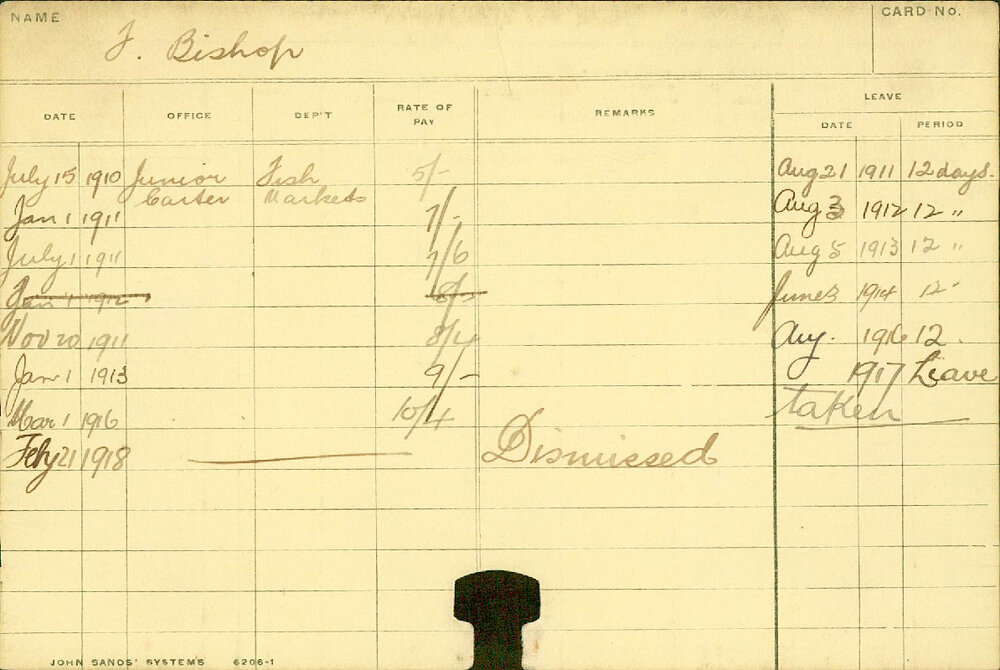 NAME
CARD NO.
F. Bishop
LEAVE
DATE OFFICE DEP'T RATE OF PAY REMARKS DATE PERIOD
July 15 1910 Junior Fish 5/- Aug 21 1911 12 days.
Carter Markets
Jan 1 1911 7/- Aug 3 1912 12 "
July 1 1911 7/6 Aug 5 1913 12 "
Jan 1 1912 8/- June 3 1914 12 "
Nov 20 1911 8/4 Aug. 1916 12.
Jan 1 1913 9/- 1917 Leave
Mar 1 1916 10/4 taken
Feby 21 1918 Dismissed
JOHN SANDS' SYSTEMS 6206-1